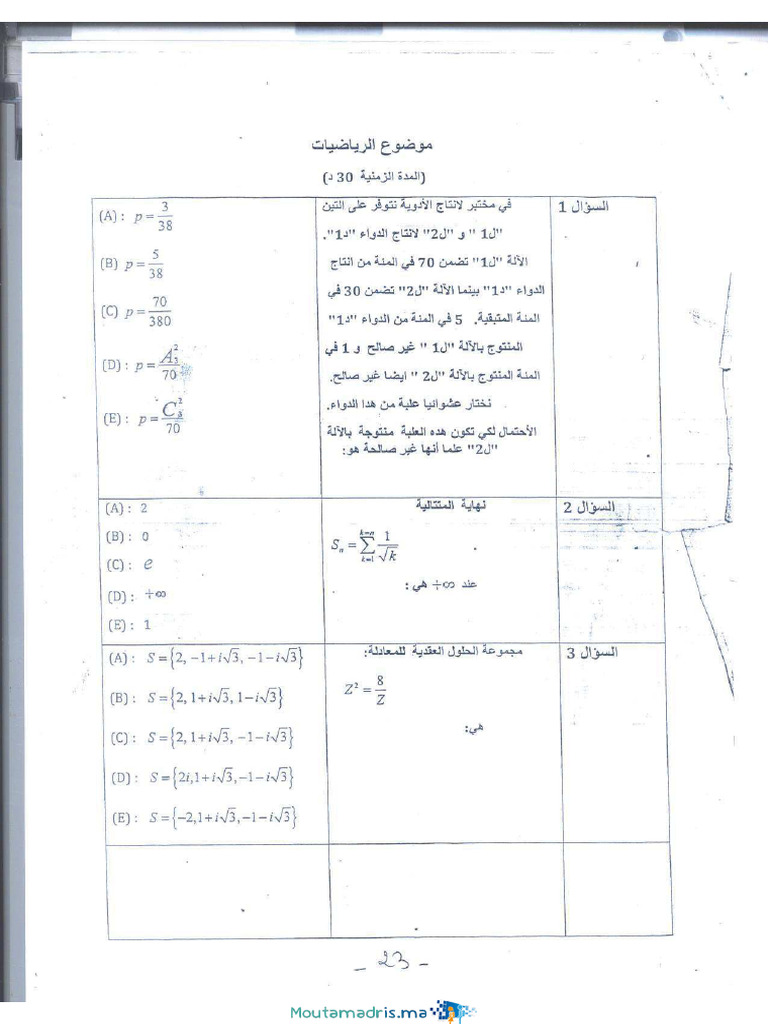 موضوع الرياضيات
(المدة الزمنية 30 د)
السؤال 1
في مختبر لانتاج الأدوية نتوفر على التين
"ل1" و "ل2" لانتاج الدواء "د1".
الآلة "ل1" تضمن 70 في المئة من انتاج
الدواء "د1" بينما الآلة "ل2" تضمن 30 في
المئة المتبقية. 5 في المئة من الدواء "د1"
المنتوج بالآلة "ل1" غير صالح و 1 في
المئة المنتوج بالآلة "ل2" ايضا غير صالح.
نختار عشوائيا علبة من هدا الدواء.
الأحتمال لكي تكون هده العلبة منتوجة بالآلة
"ل2" علما أنها غير صالحة هو:
(A) : p = 3/38
(B) p = 5/38
(C) p = 70/380
(D) : p = A_3^2/70
(E) : p = C_3^2/70
السؤال 2
نهاية المتتالية
S_n = ∑_{k=1}^{k=n} 1/√k
عند +∞ هي :
(A) : 2
(B) : 0
(C) : e
(D) : +∞
(E) : 1
السؤال 3
مجموعة الحلول العقدية للمعادلة:
Z² = 8/Z
هي:
(A) : S = {2, −1+i√3, −1−i√3}
(B) : S = {2, 1+i√3, 1−i√3}
(C) : S = {2, 1+i√3, −1−i√3}
(D) : S = {2i, 1+i√3, −1−i√3}
(E) : S = {−2, 1+i√3, −1−i√3}
- 23 -
Moutamadris.ma